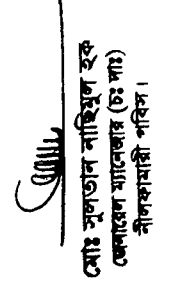 মোঃ সুলতান নাছিমুল হক
জেনারেল ম্যানেজার (চঃ দাঃ)
নীলফামারী পবিস।